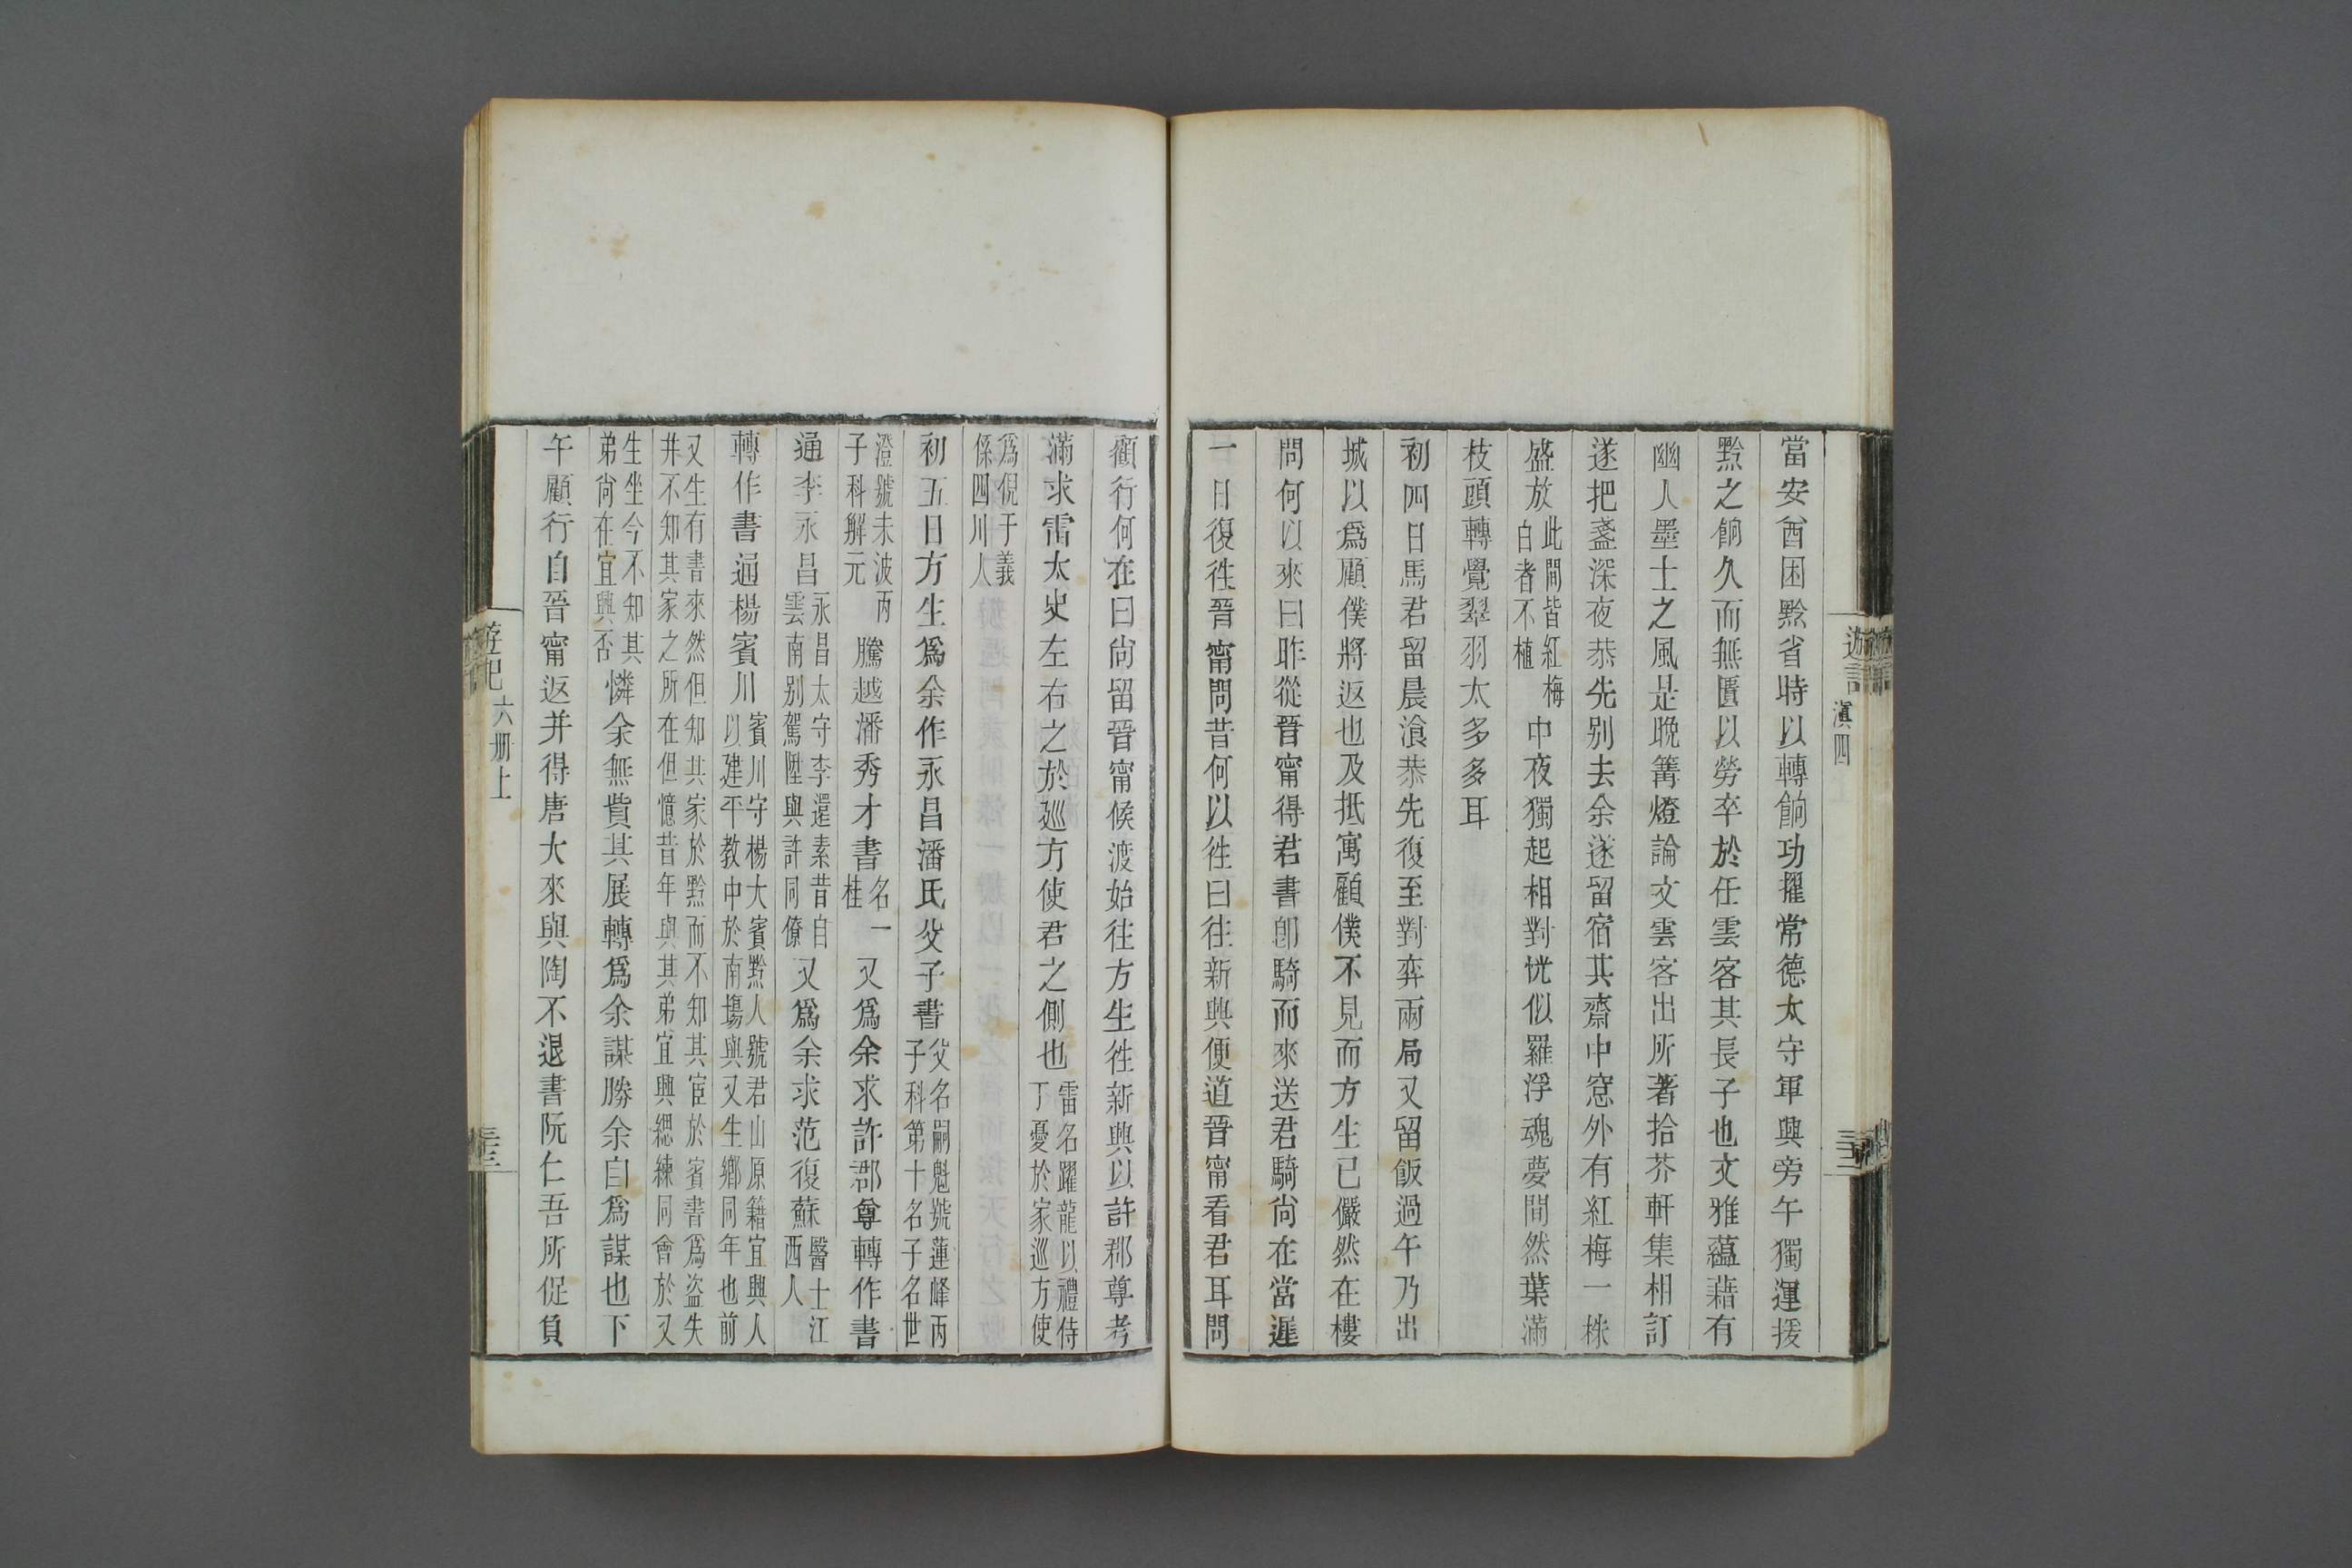 遊記
滇四
三三
當安酋困黔省時以轉餉功擢常德太守軍興旁午獨運援
黔之餉久而無匱以勞卒於任雲客其長子也文雅蘊藉有
幽人墨士之風是晚篝燈論文雲客出所著拾芥軒集相訂
遂把盞深夜恭先別去余遂留宿其齋中窓外有紅梅一株
盛放此間皆紅梅白者不植中夜獨起相對恍似羅浮魂夢間然葉滿
枝頭轉覺翠羽太多多耳
初四日馬君留晨飡恭先復至對弈兩局又留飯過午乃出
城以爲顧僕將返也及抵寓顧僕不見而方生已儼然在樓
問何以來曰昨從晉甯得君書卽騎而來送君騎尚在當遲
一日復徃晉甯問昔何以徃曰往新興便道晉甯看君耳問
顧行何在曰尚留晉甯候渡始往方生徃新興以許郡尊考
滿求雷太史左右之於巡方使君之側也雷名躍龍以禮侍丁憂於家巡方使
爲倪于義係四川人
初五日方生爲余作永昌潘氏父子書父名嗣魁號蓮峰丙子科第十名子名世
澄號未波丙子科解元騰越潘秀才書名一桂又爲余求許郡尊轉作書
通李永昌永昌太守李還素昔自雲南別駕陞與許同僚又爲余求范復蘇醫士江西人
轉作書通楊賓川賓川守楊大賓黔人號君山原籍宜興人以建平教中於南塲與又生鄉同年也前
又生有書來然但知其家於黔而不知其宦於賓書爲盗失并不知其家之所在但憶昔年與其弟宜興總練同會於又
生坐今不知其弟尚在宜興否憐余無貲其展轉爲余謀勝余自爲謀也下
午顧行自晉甯返并得唐大來與陶不退書阮仁吾所促負
遊記
六册上
三三